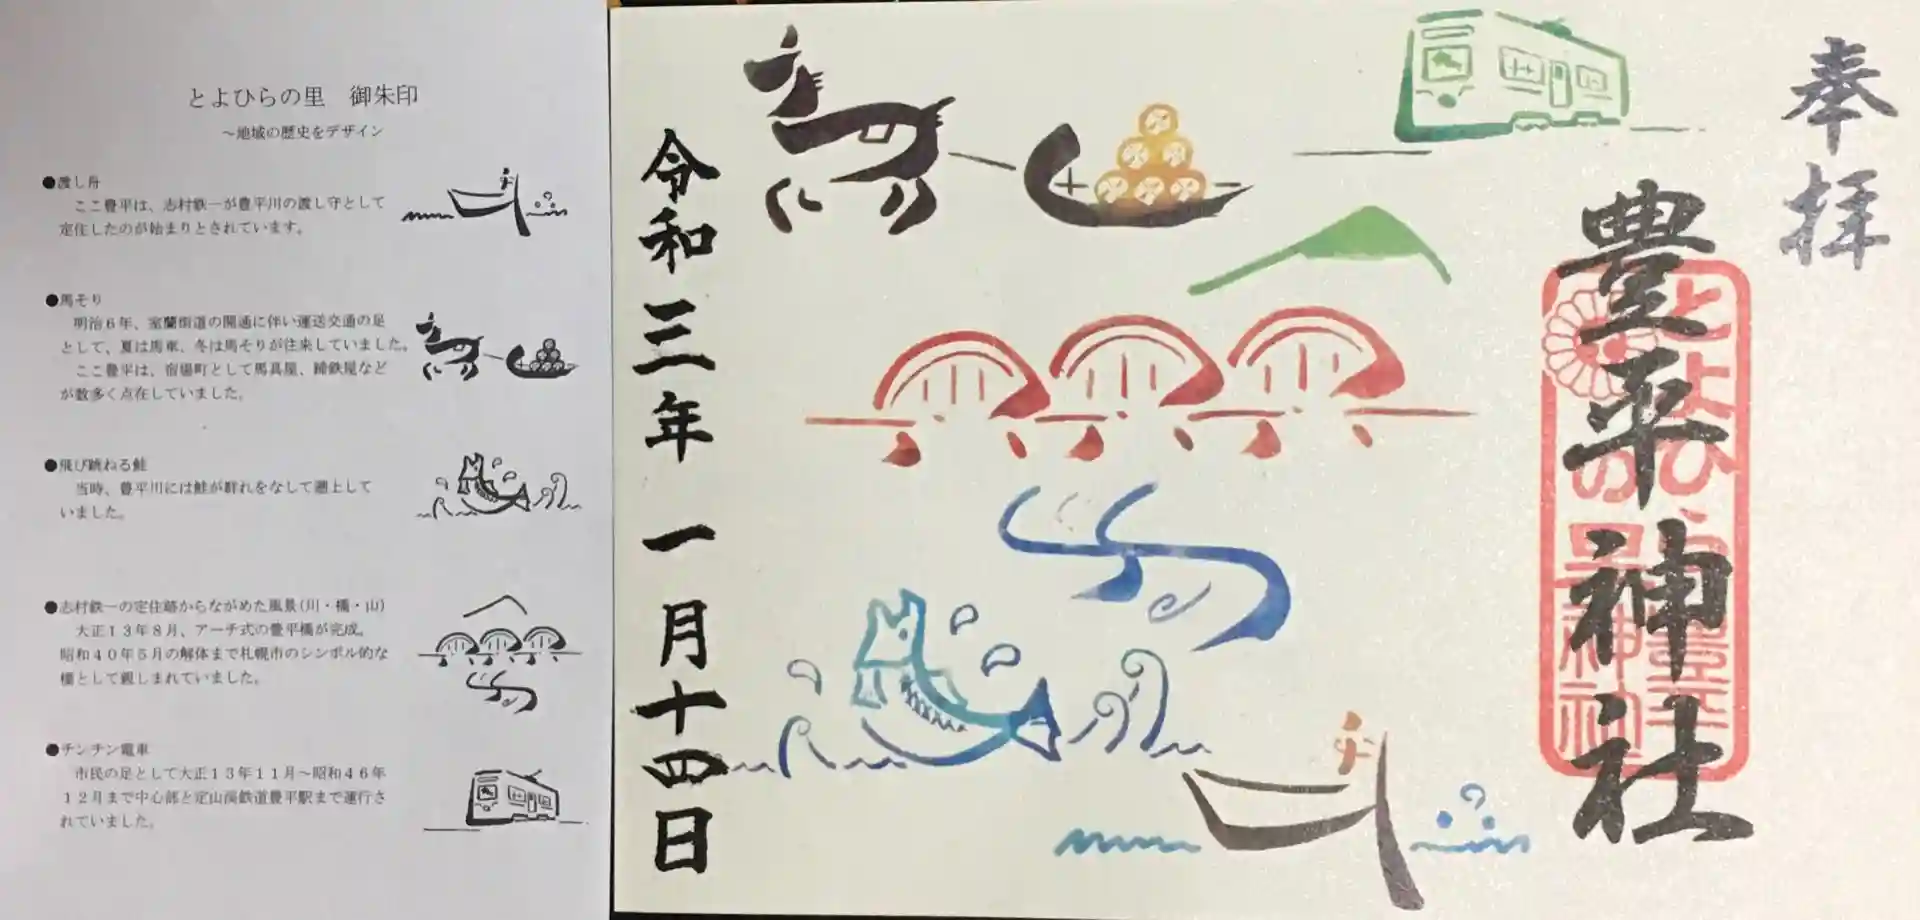 とよひらの里 御朱印
～地域の歴史をデザイン
●渡し舟
ここ豊平は、志村鉄一が豊平川の渡し守として
定住したのが始まりとされています。
●馬そり
明治6年、室蘭街道の開通に伴い運送交通の足
として、夏は馬車、冬は馬そりが往来していました。
ここ豊平は、宿場町として馬具屋、蹄鉄屋など
が数多く点在していました。
●飛び跳ねる鮭
当時、豊平川には鮭が群れをなして遡上して
いました。
●志村鉄一の定住跡からながめた風景(川・橋・山)
大正13年8月、アーチ式の豊平橋が完成。
昭和40年5月の解体まで札幌市のシンボル的な
橋として親しまれていました。
●チンチン電車
市民の足として大正13年11月～昭和46年
12月まで中心部と定山渓鉄道豊平駅まで運行さ
れていました。
奉拝
豊平神社
とよひら
の里
令和三年 一月十四日